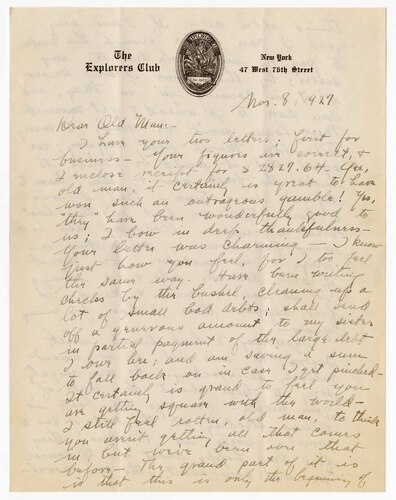 The
Explorers Club
New York
47 West 76th Street
Nov. 8, 1927
Dear Old Man:-
I have your two letters; first for
business - Your figures are correct, &
I enclose receipt for $2827.64. Yes,
old man, it certainly is great to have
won such an outrageous gamble! Yes,
"they" have been wonderfully good to
us; I bow in deep thankfulness -
Your letter was charming - I know
just how you feel, for I too feel
the same way. Have been writing
checks by the bushel cleaning up a
lot of small bad debts; shall send
off a generous amount to my sister
in partial payment of the large debt
I owe her; and am saving a sum
to fall back on in case I get pinched -
It certainly is grand to feel you
are getting square with the world -
I still feel rotten, old man, to think
you aren't getting all that comes
in but we've been over that
before - The grand part of it is
is that this is only the beginning of